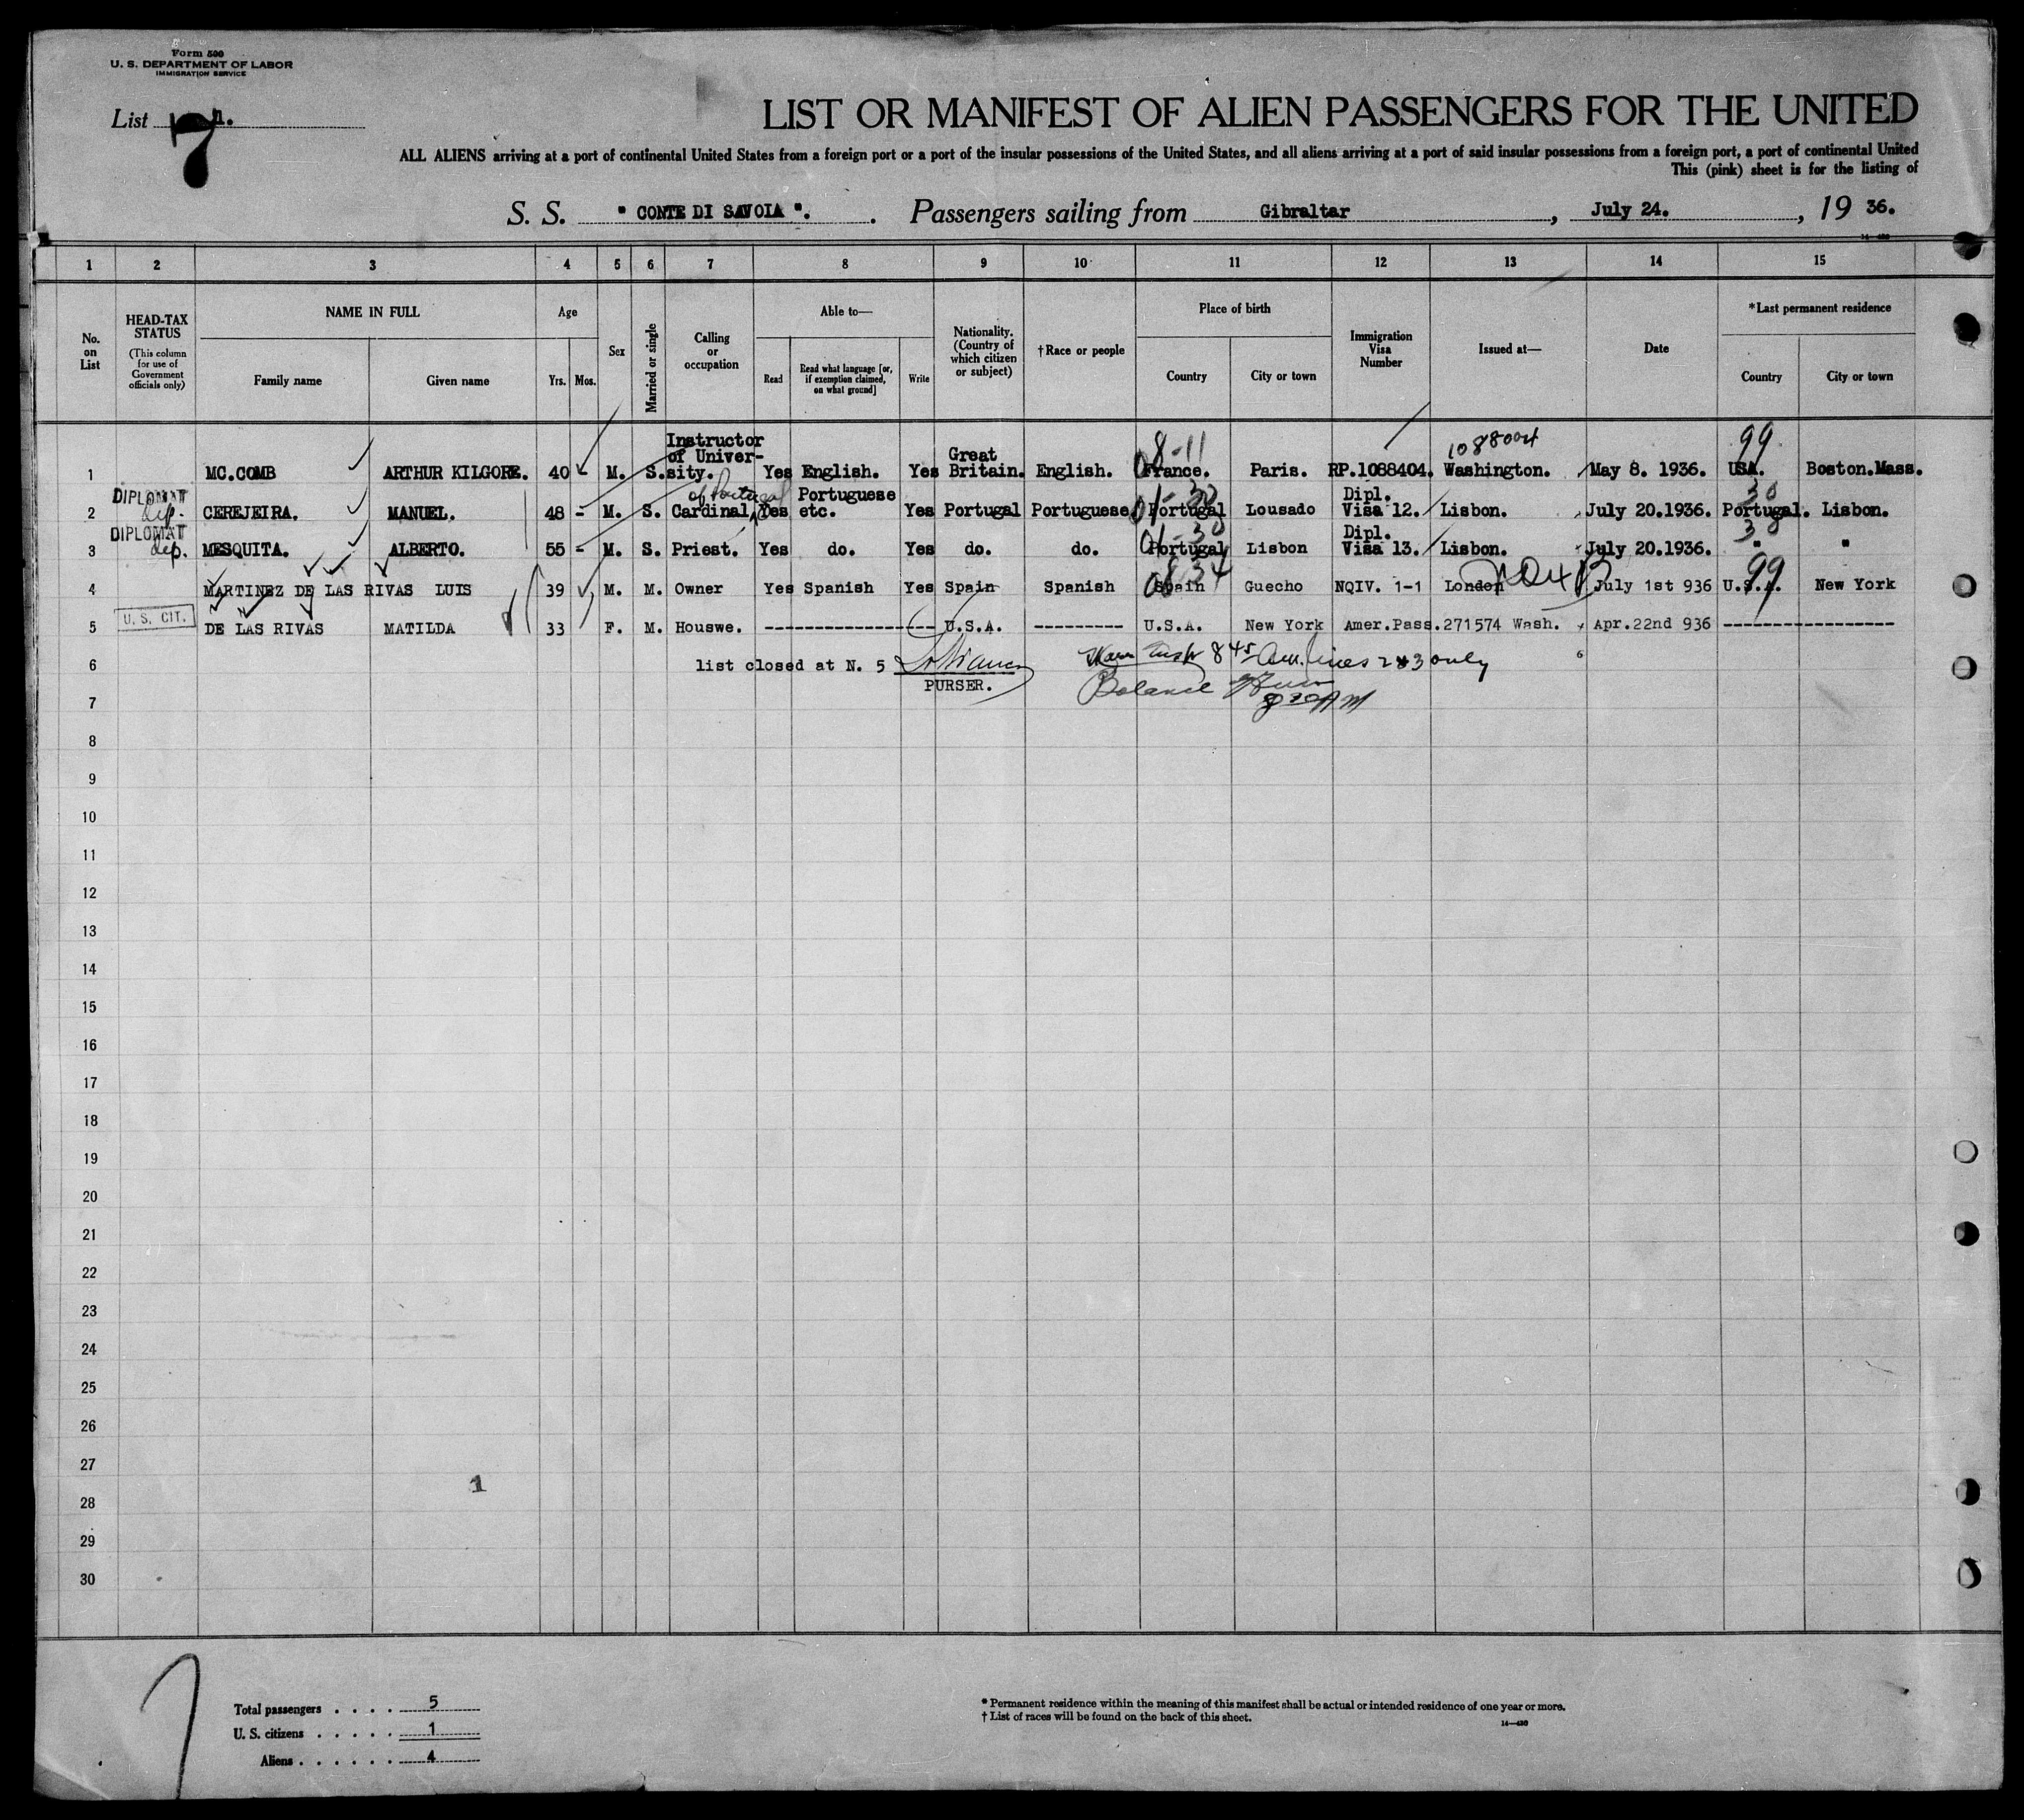 Form 500
U. S. DEPARTMENT OF LABOR
IMMIGRATION SERVICE
List 1.
7
LIST OR MANIFEST OF ALIEN PASSENGERS FOR THE UNITED
ALL ALIENS arriving at a port of continental United States from a foreign port or a port of the insular possessions of the United States, and all aliens arriving at a port of said insular possessions from a foreign port, a port of continental United
This (pink) sheet is for the listing of
S. S. " CONTE DI SAVOIA ". Passengers sailing from Gibraltar, July 24., 19 36.
1 2 3 4 5 6 7 8 9 10 11 12 13 14 15
No. on List
HEAD-TAX STATUS (This column for use of Government officials only)
NAME IN FULL
Family name Given name
Age
Yrs. Mos.
Sex
Married or single
Calling or occupation
Able to—
Read Read what language [or, if exemption claimed, on what ground] Write
Nationality. (Country of which citizen or subject)
† Race or people
Place of birth
Country City or town
Immigration Visa Number
Issued at—
Date
*Last permanent residence
Country City or town
08-11 1088004 99
1 MC.COMB ARTHUR KILGORE. 40 M. S. Instructor of Univer-sity. Yes English. Yes Great Britain. English. France. Paris. RP.1088404. Washington. May 8. 1936. USA. Boston.Mass.
DIPLOMAT dep. of Portugal 01-30 30
2 CEREJEIRA. MANUEL. 48 - M. S. Cardinal Yes Portuguese etc. Yes Portugal Portuguese Portugal Lousado Dipl. Visa 12. Lisbon. July 20.1936. Portugal. Lisbon.
DIPLOMAT dep. 01-30 30
3 MESQUITA. ALBERTO. 55 - M. S. Priest. Yes do. Yes do. do. Portugal Lisbon Dipl. Visa 13. Lisbon. July 20.1936. " "
0834 99
4 MARTINEZ DE LAS RIVAS LUIS 39 M. M. Owner Yes Spanish Yes Spain Spanish Spain Guecho NQIV. 1-1 London July 1st 936 U.S.A. New York
U. S. CIT.
5 DE LAS RIVAS MATILDA 33 F. M. Houswe. ----------------- U.S.A. --------- U.S.A. New York Amer.Pass.271574 Wash. Apr.22nd 936 -----------------
6 list closed at N. 5 8 45 Am. lines 2 & 3 only
PURSER. Balance
7 8 30 AM
8
9
10
11
12
13
14
15
16
17
18
19
20
21
22
23
24
25
26
27
1
28
29
30
Total passengers . . . . 5
U. S. citizens . . . . . 1
Aliens . . . . . . 4
* Permanent residence within the meaning of this manifest shall be actual or intended residence of one year or more.
† List of races will be found on the back of this sheet.
14—430